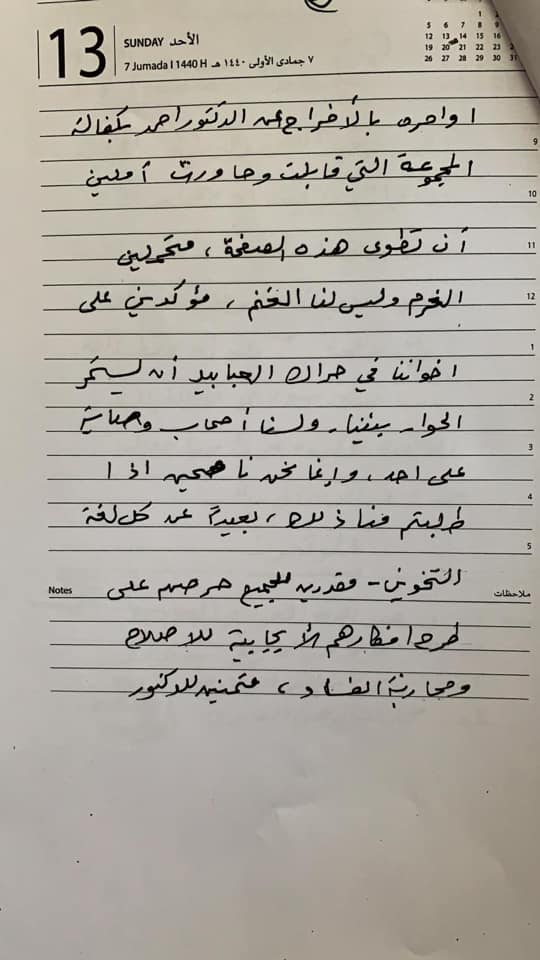 1 2
5 6 7 8 9
12 13 14 15 16
19 20 21 22 23 2
26 27 28 29 30 31
13
SUNDAY الأحد
7 Jumada I 1440 H ٧ جمادى الأولى ١٤٤٠ هـ
اوامره بالأفراج عن الدكتور احمد بكفالة
9
المجموعة التي قابلت وحاورت أملين
10
أن تطوى هذه الصفحة، متحملين
11
الغرم وليس لنا الغنم، مؤكدين على
12
اخواننا في حراك العبابيد أن يستمر
1
الحوار بيننا، ولسنا أصحاب وصاية
2
على احد، وإنما نحن ناصحين اذا
3
طلبتم منا ذلك، بعيداً عن كل لغة
4
5
التخوين - مقدرين للجميع حرصهم على
Notes ملاحظات
طرح افكارهم الأيجابية للاصلاح
ومحاربة الفساد، متمنين للدكتور